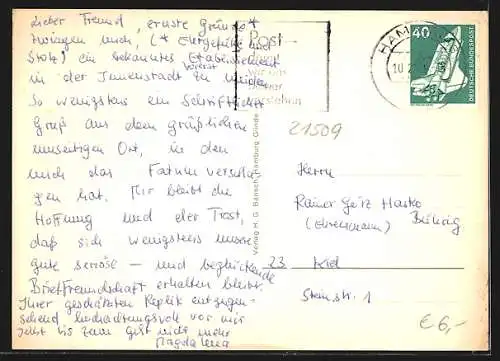 Lieber Freund, ernste Gründe*
zwingen mich, (* Ehrgefühl und
Stolz) ein bekanntes Etablissement
in der Innenstadt zu meiden
So wenigstens ein schriftlicher
Gruß aus dem gräßlichen
umseitigen Ort, in den
mich das Fatum verschla-
gen hat. Mir bleibt die
Hoffnung und der Trost,
daß sich wenigstens unsere
gute seriöse – und beglückende
Brieffreundschaft erhalten bleibt.
Ihrer geschätzten Replik entgegen-
sehend hochachtungsvoll vor mir
bis zum mehr
Magdalena
Verlag H. G. Bansch, Hamburg Glinde
Post
HAM
10
40
DEUTSCHE BUNDESPOST
21509
Herrn
Rainer Götz Hasko
(Ehrenmann)
23 Kiel
Steinstr. 1
€ 6,-